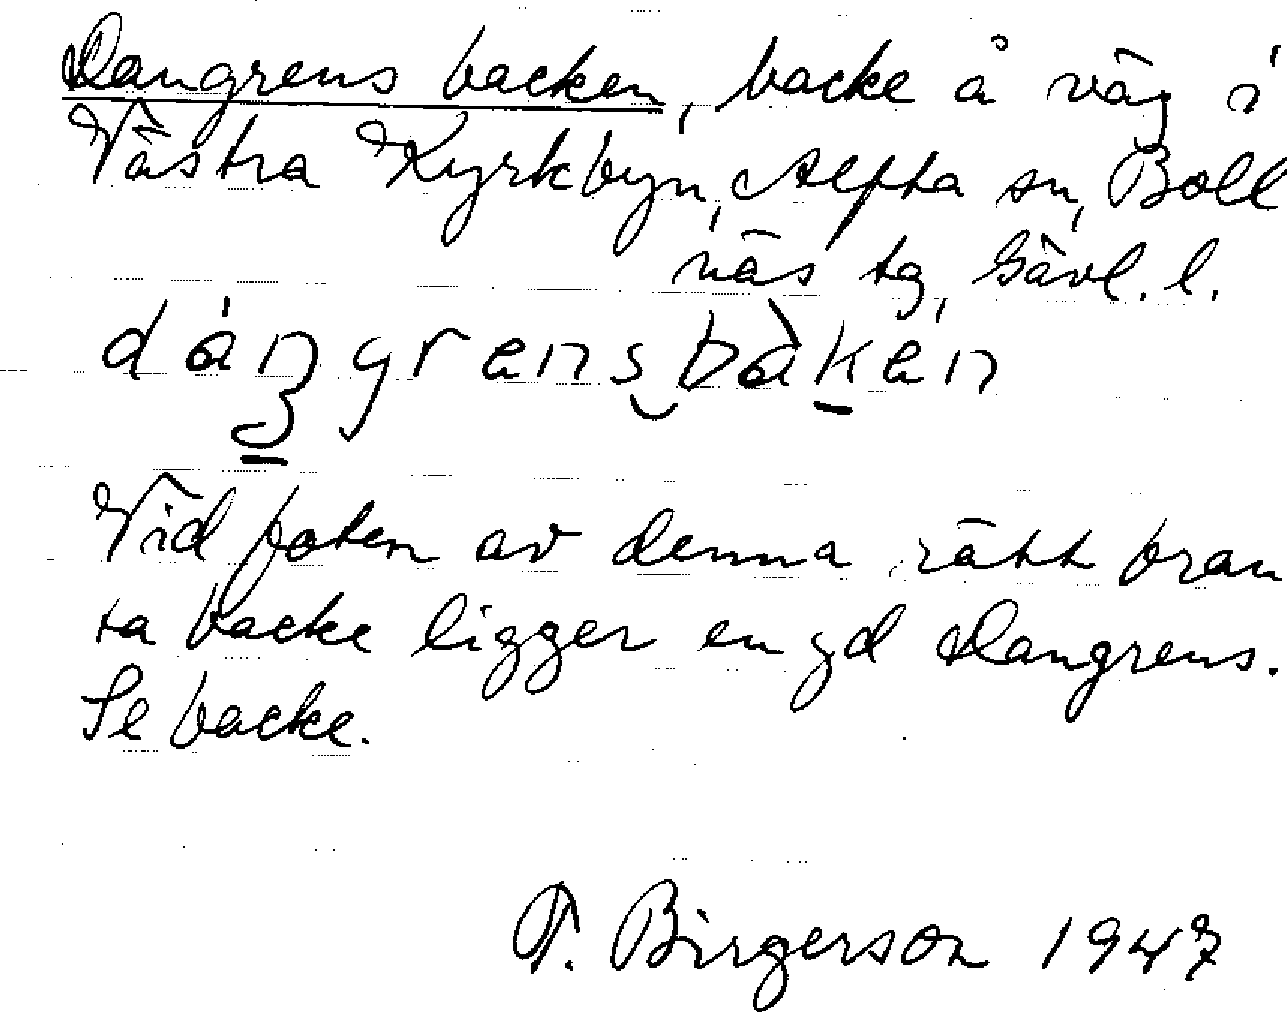 Dangrens backen, backe å väg i
Västra Kyrkbyn, Alfta sn, Boll
näs tg, Gävl. l.
dáŋgrensbàken
Vid foten av denna rätt bran
ta backe ligger en gd Dangrens.
Se backe.
F. Birgerson 1947